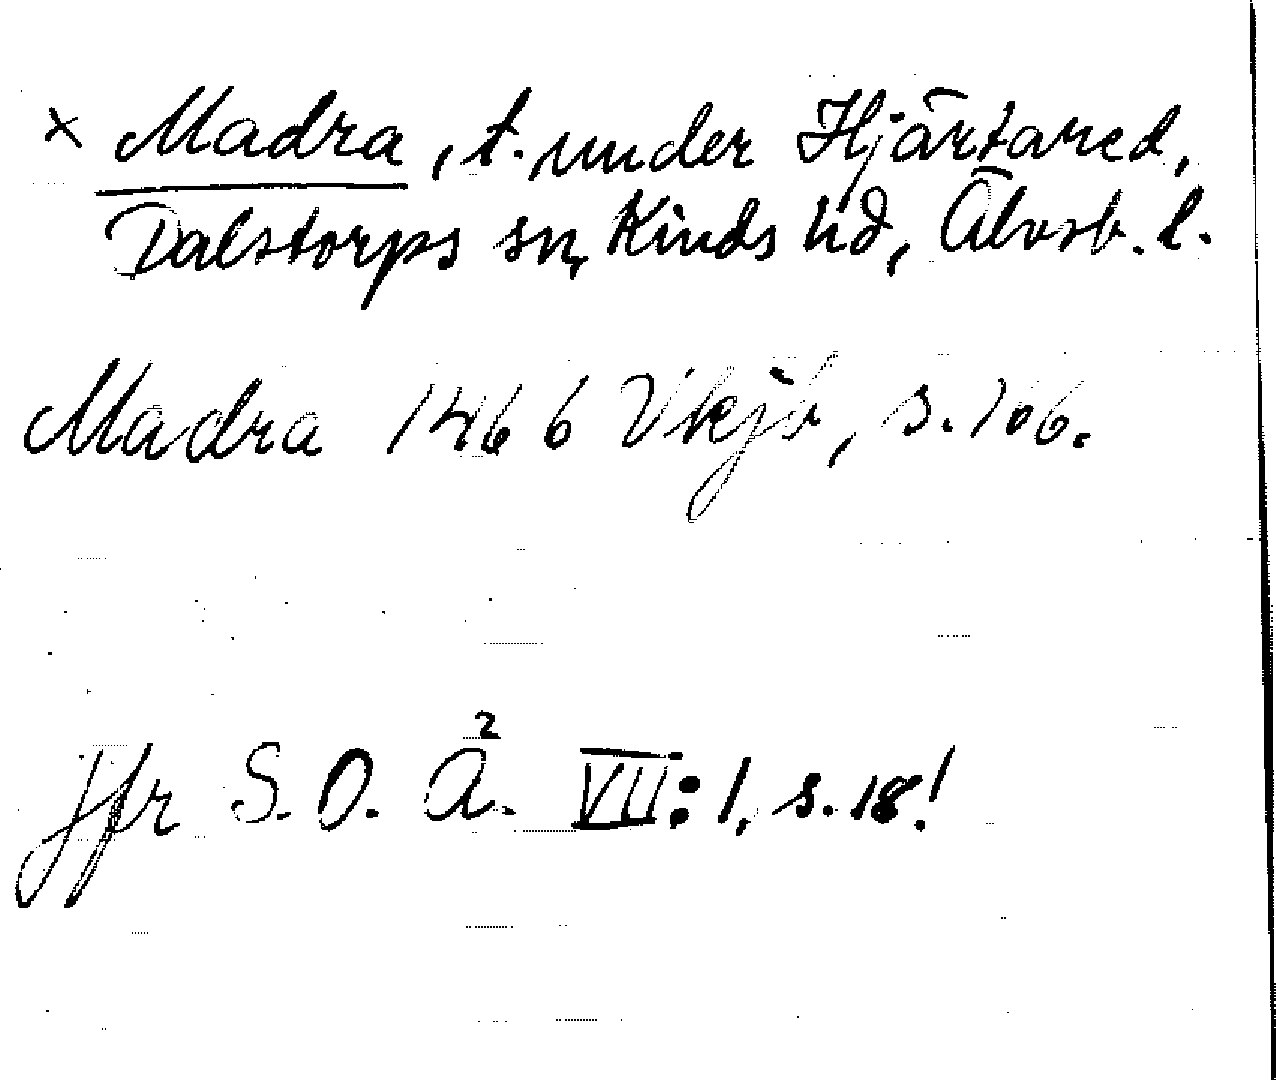 × Madra, t. under Hjärtared,
Dalstorps sn, Kinds hd, Älvsb. l.
Madra 1466 Vkjb, s. 106.
Jfr S.O.Ä². VII:1, s. 18!